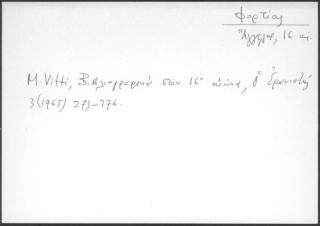 Φορτίος
Ἄγγελος, 16 αἰ.
M. Vitti, Βιβλιογραφικά του 16ου αἰώνα, ὁ Ἐρανιστής
3 (1965) 273-276.